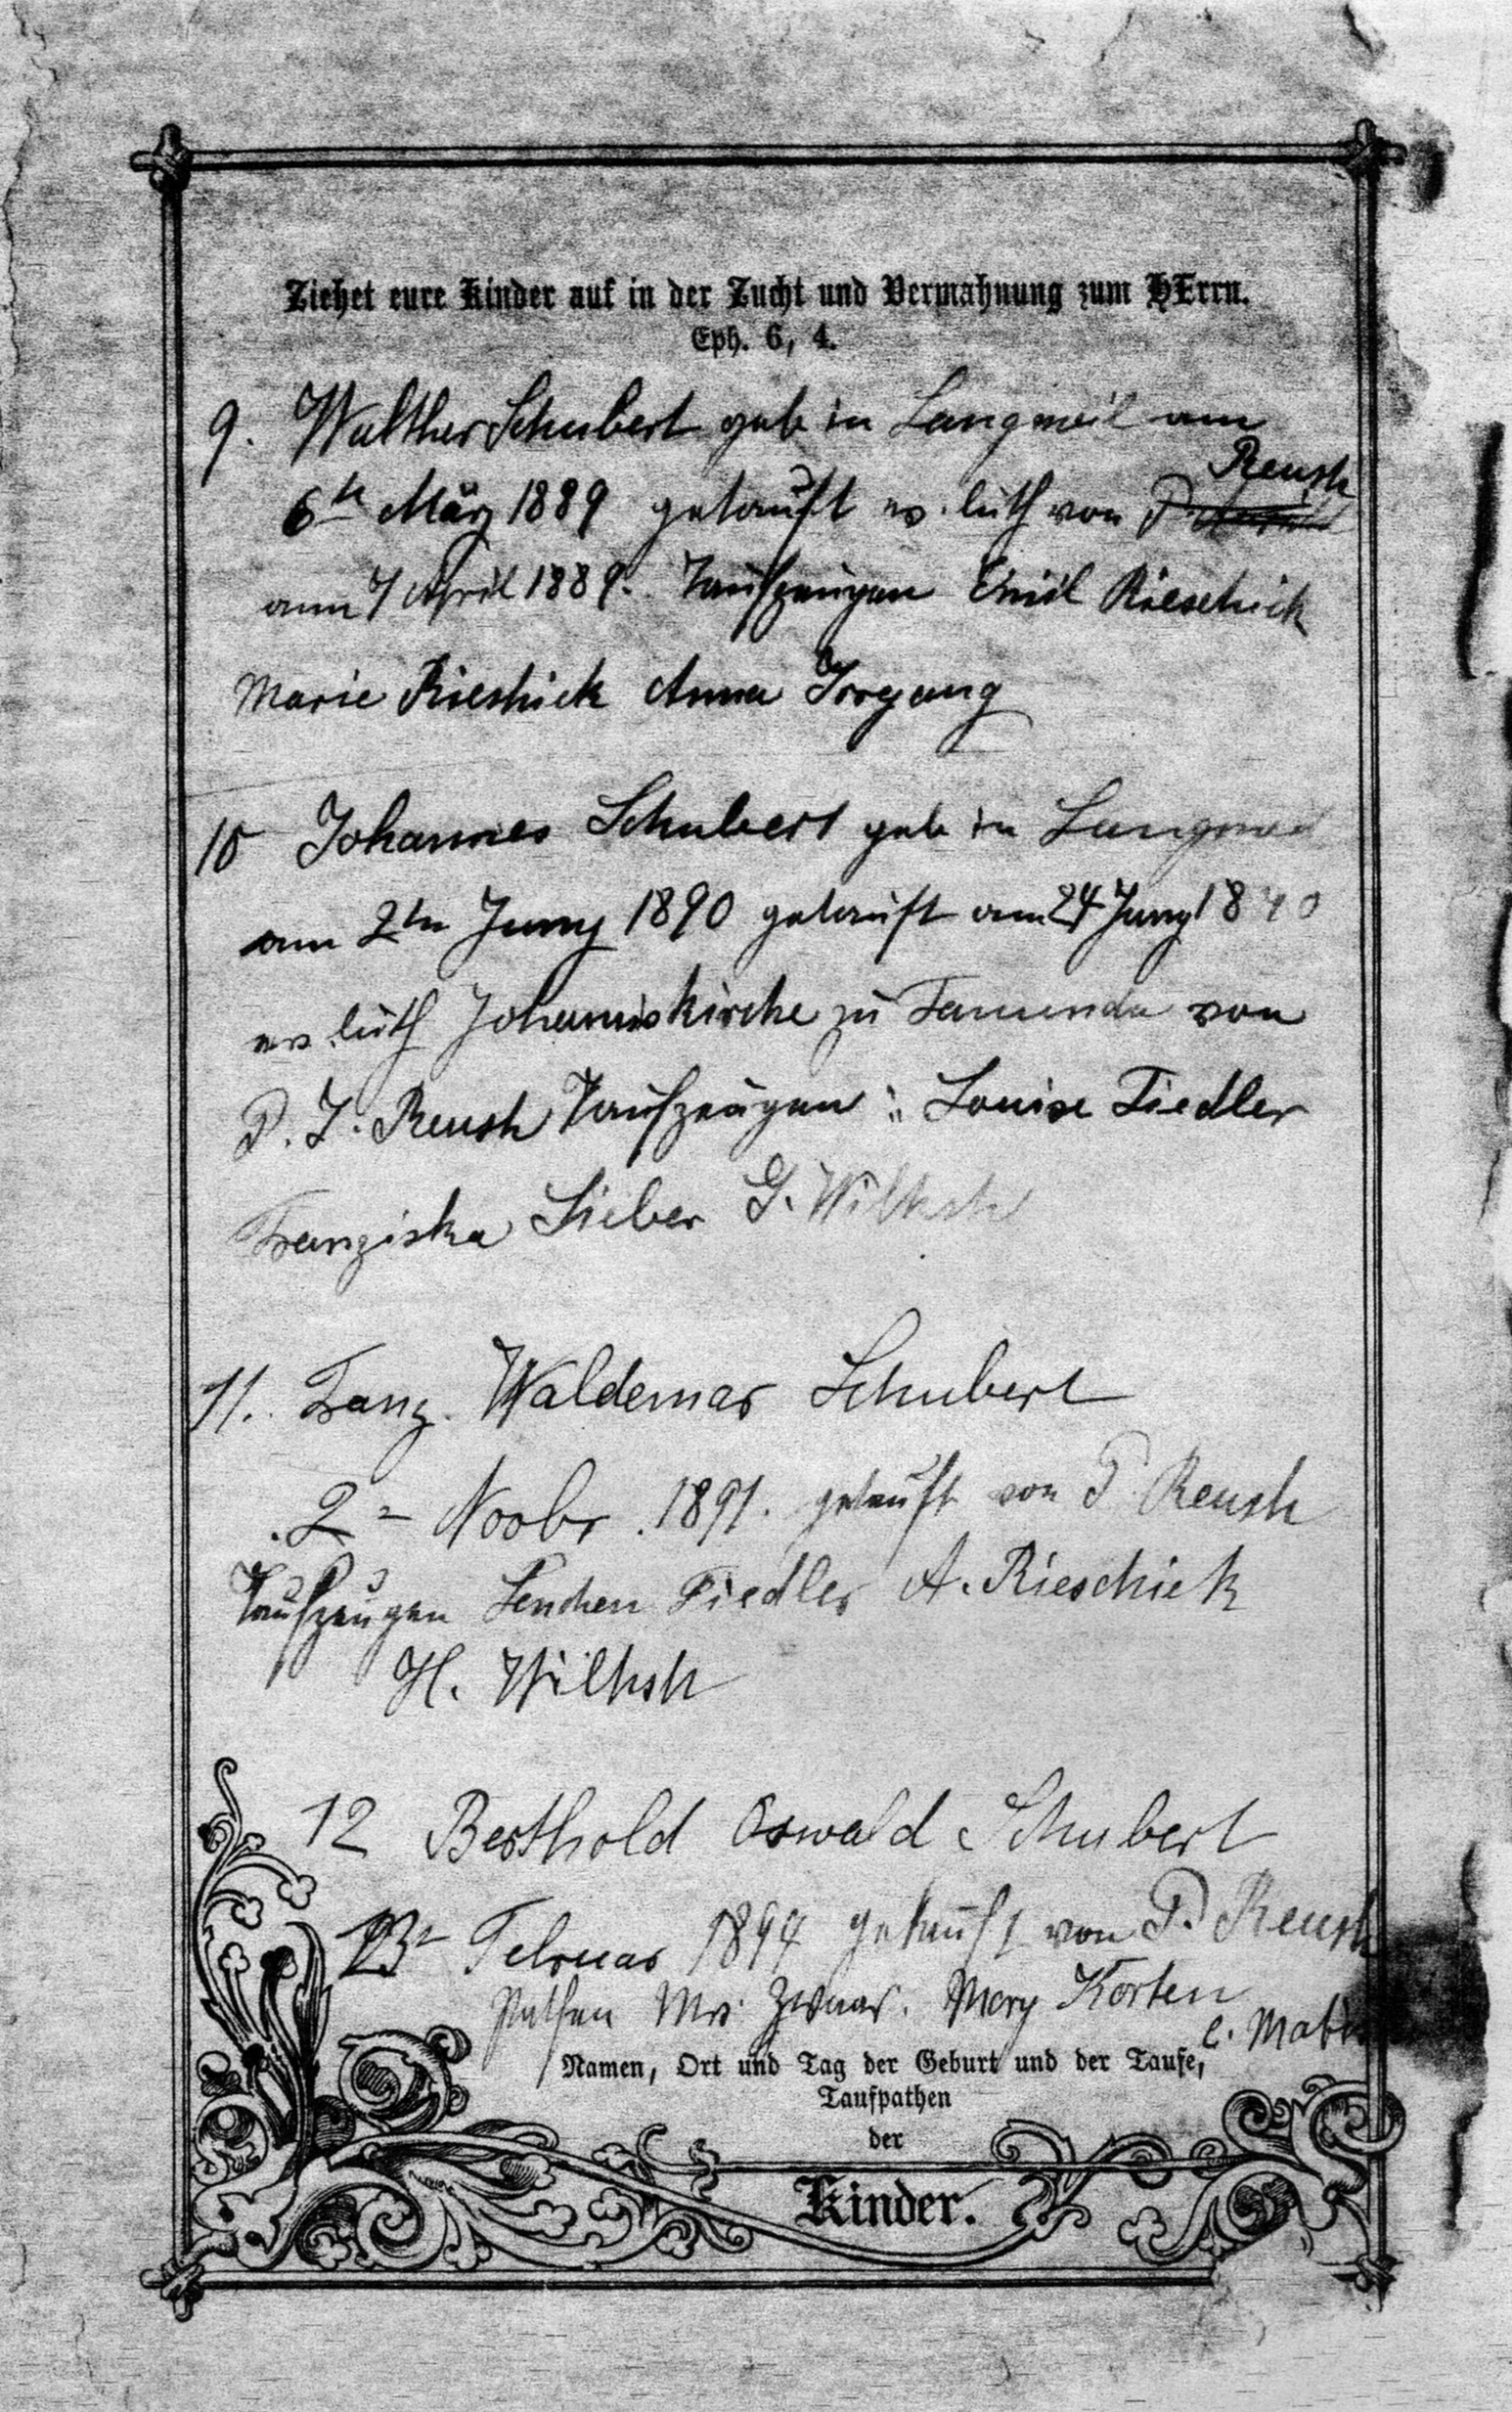 Ziehet eure Kinder auf in der Zucht und Vermahnung zum HErrn.
Eph. 6, 4.
9. Walther Schubert geb in Langmeil am
Reusch
6te März 1889 getauft ev. luth von P.
am 7 April 1889. Taufzeugen Emil Rieschick
Marie Rieschick Anna Irrgang
10 Johannes Schubert geb in Langmeil
am 2tn Juny 1890 getauft am 24 Juny 1890
ev. luth Johanniskirche zu Tanunda von
P. J. Reusch Taufzeugen: Louise Fiedler
Franziska Sieber G. Wilksch
11. Franz. Waldemar Schubert
2 - Novbr. 1891. getauft von P. Reusch
Taufzeugen Lenchen Fiedler A. Rieschick
H. Wilksch
12 Berthold Oswald Schubert
Februar 1894 getauft von P. Reusch
Pathen Mrs. Zwaar. Mary Korten
C.
Namen, Ort und Tag der Geburt und der Taufe,
Taufpathen
der
Kinder.